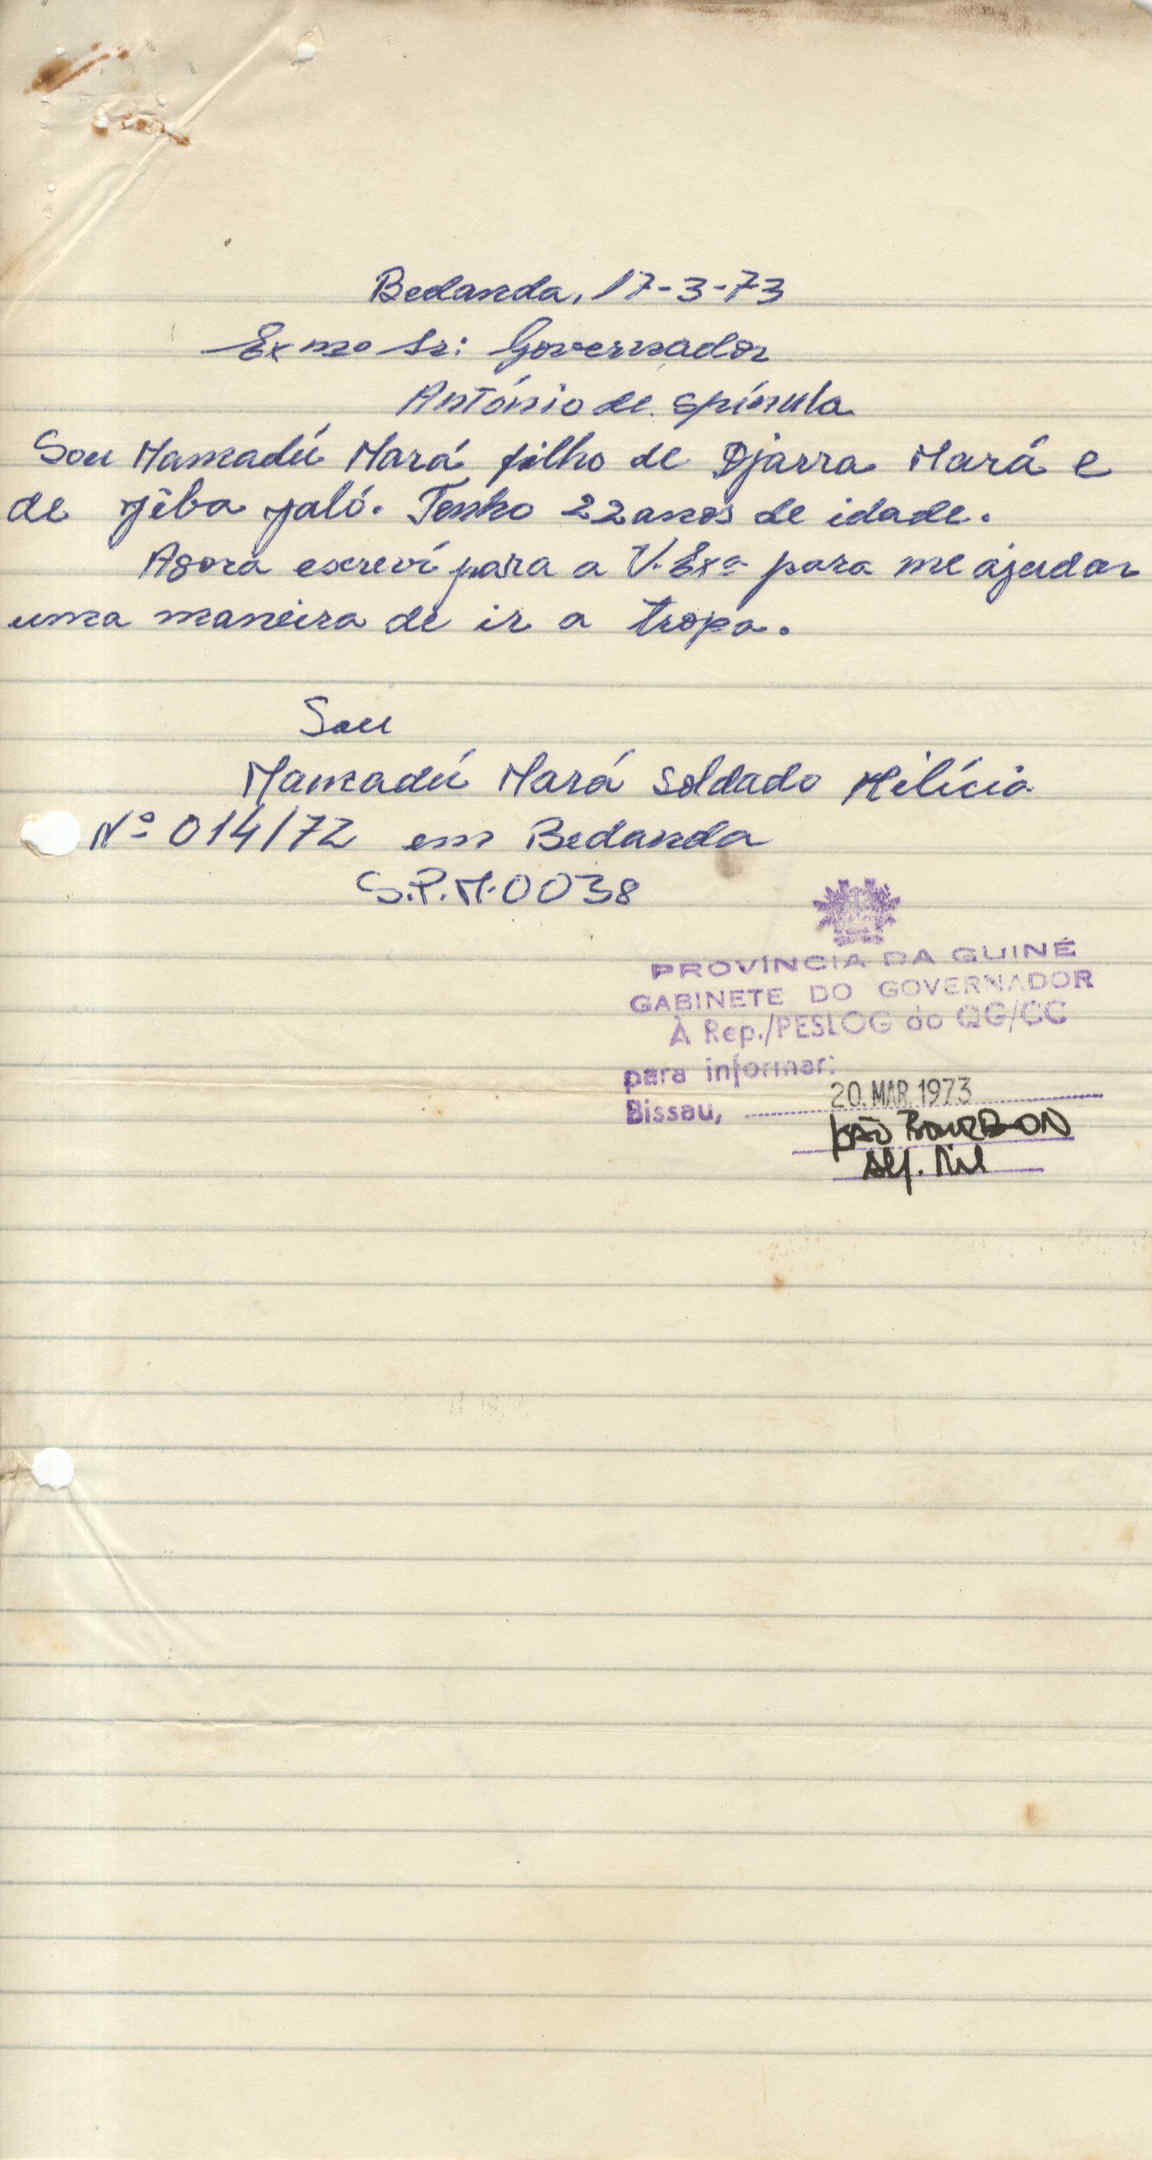 Bedanda, 17-3-73
Exmo Sr: Governador
António de spínula
Sou Mamadú Mará filho de Djarra Mará e
de Jiba Jaló. Tenho 22 anos de idade.
Agora escreví para a V. Exª para me ajudar
uma maneira de ir a tropa.
Sou
Mamadú Mará Soldado Milícia
Nº 014/72 em Bedanda
S.P.M. 0038
PROVÍNCIA DA GUINÉ
GABINETE DO GOVERNADOR
À Rep./PESLOG do QG/CC
para informar:
Bissau, 20. MAR. 1973
JOÃO BOURBON
Alf. Mil